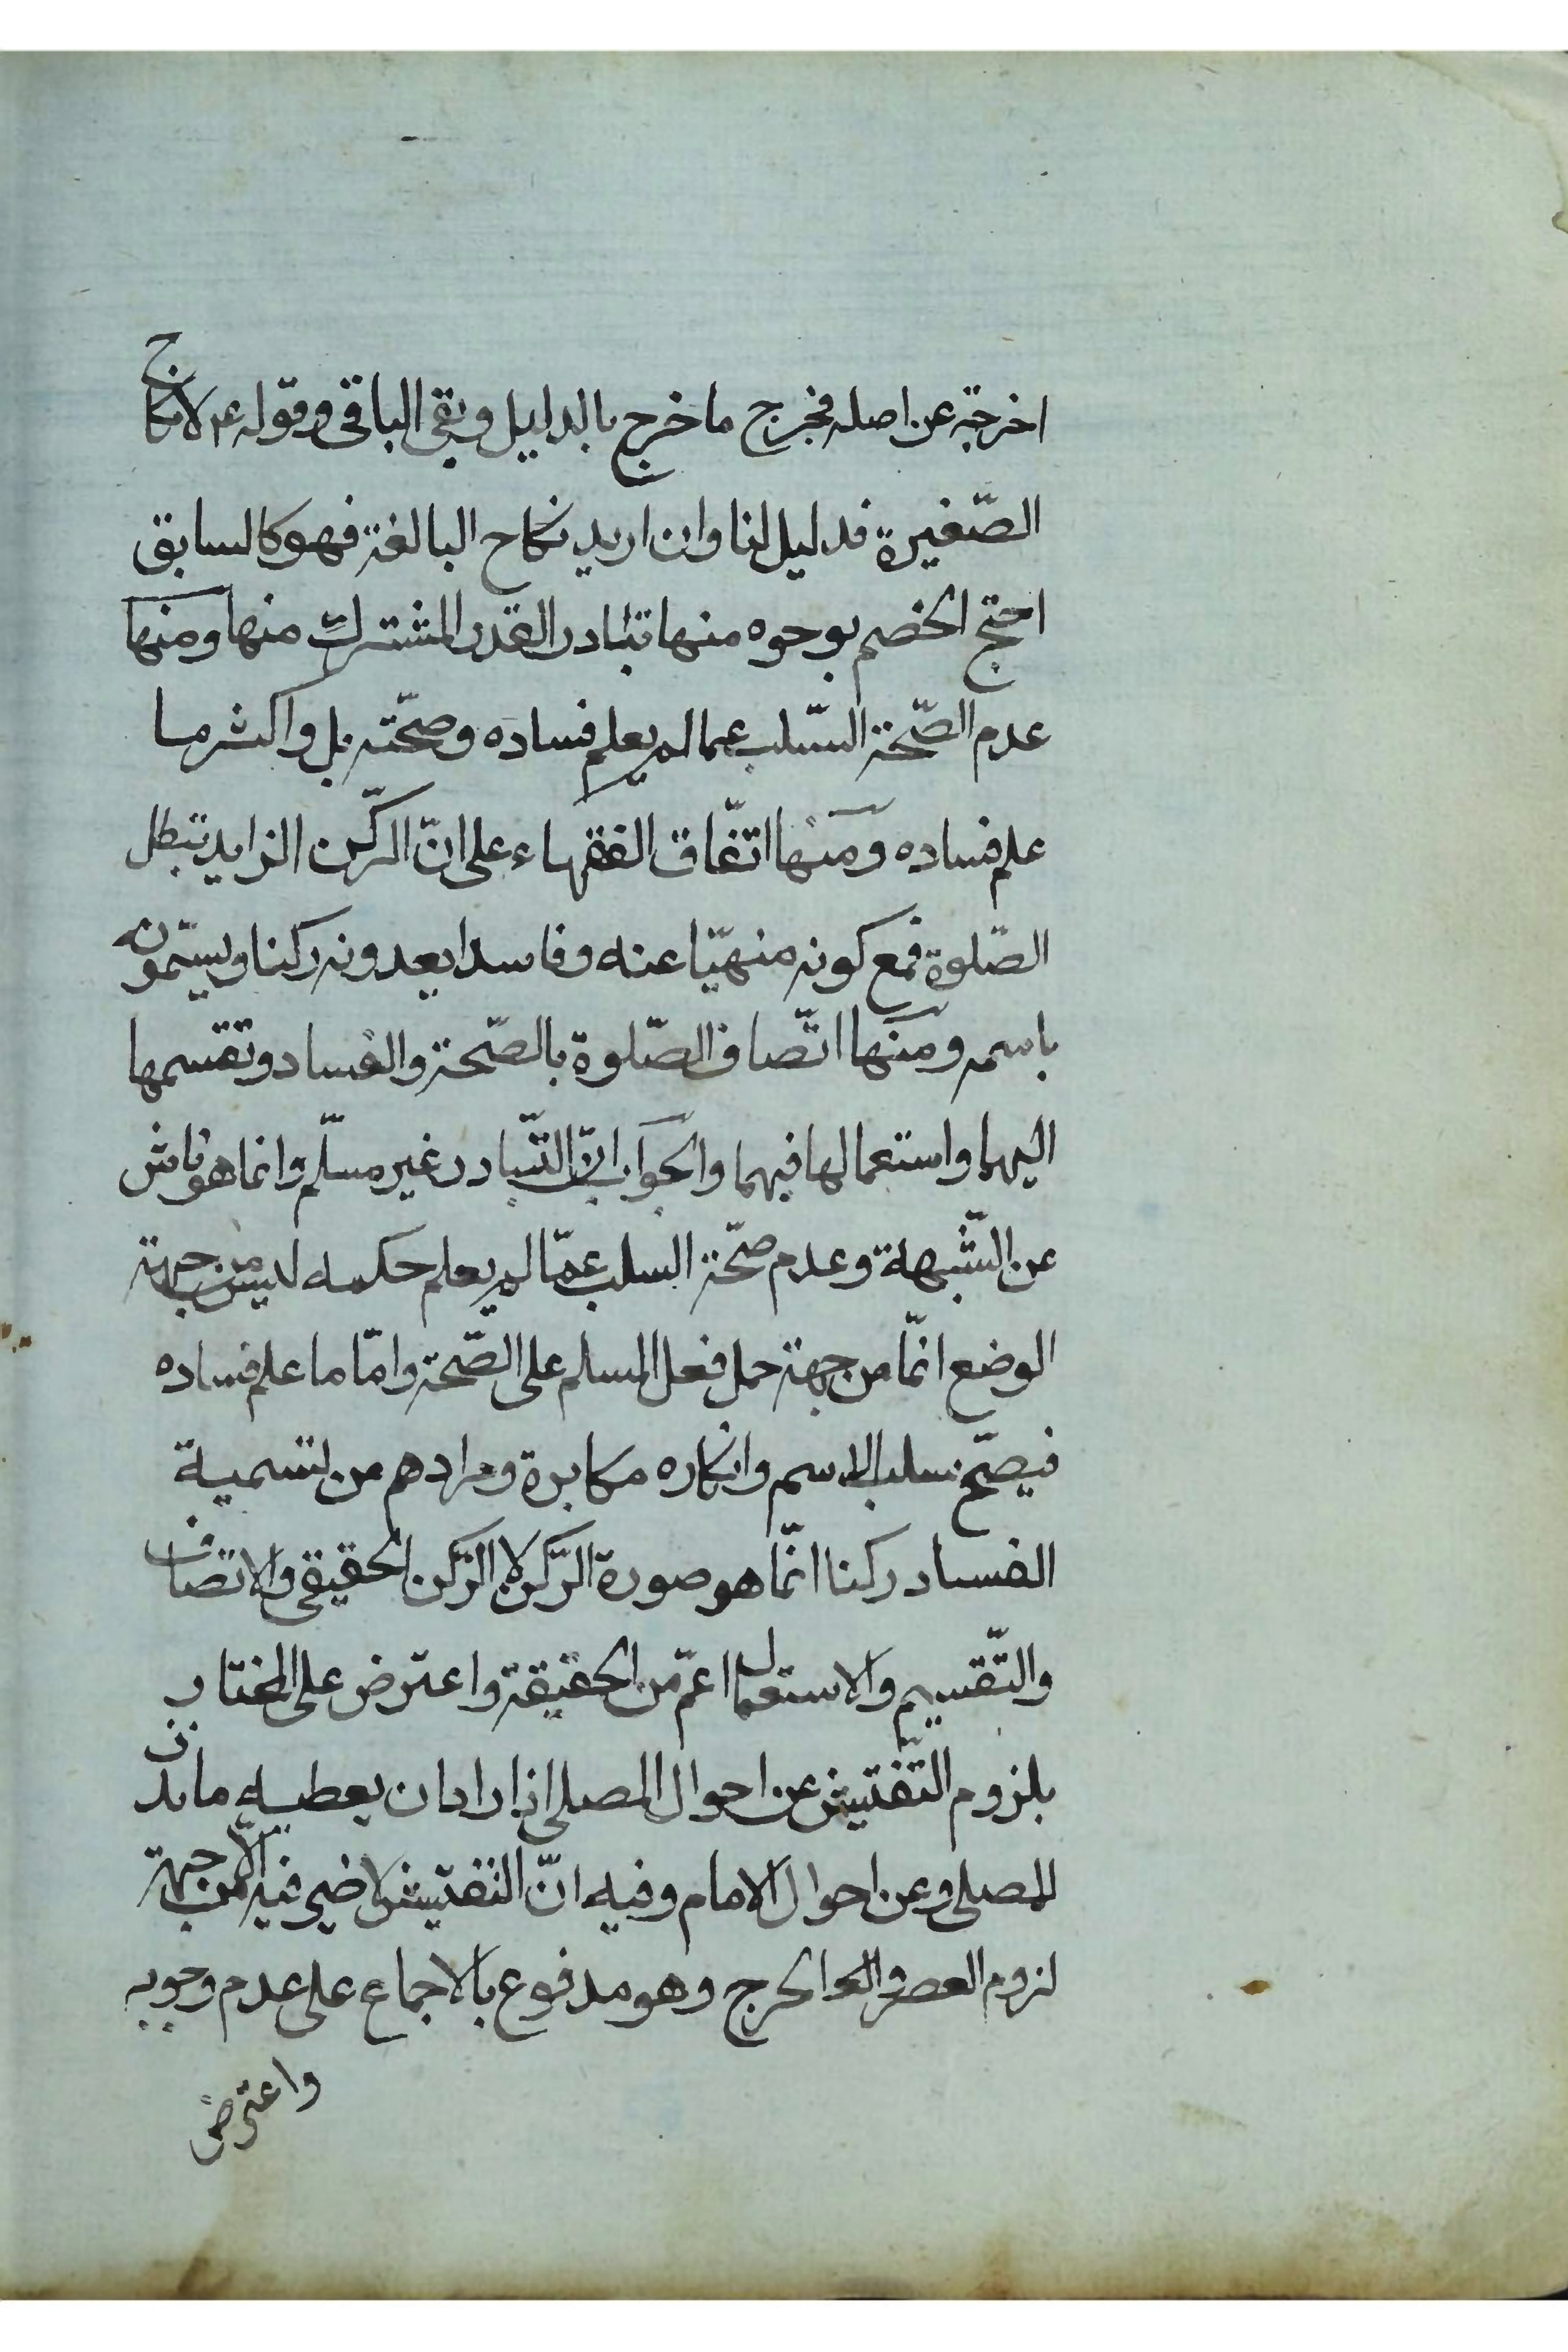 اخرجته عن اصله فخرج ما خرج بالدليل وبقى الباقى وقوله عم لانكاح
الصّغيرة فدليل لنا وان اريد نكاح البالغة فهو كالسابق
احتج الخصم بوجوه منها تبادر القدر المشترك منها ومنها
عدم الصّحة السّلب عما لم يعلم فساده وصحّته بل واكثر ما
علم فساده ومنها اتّفاق الفقهاء على انّ الرّكن الزايد تبطل
الصّلوة فمع كونه منهيّا عنه وفاسدا يعدونه ركنا ويسمّونه
باسمه ومنها اتّصاف الصّلوة بالصّحة والفساد وتقسمها
اليهما واستعمالها فيهما والجواب انّ التّبادر غير مسلّم وانما هو ناش
عن الشّبهة وعدم صحّة السلب عمّا لم يعلم حكمه ليس من جهة
الوضع انّما من جهة حمل فعل المسلم على الصّحة وامّا ما علم فساده
فيصحّ سلب الاسم وانكاره مكابرة ومرادهم من تسمية
الفساد ركنا انّما هو صورة الرّكن لا الرّكن الحقيقى والاتصاف
والتّقسيم والاستعمال اعمّ من الحقيقة واعترض على المختار
بلزوم التّفتيش عن احوال المصلى اذا اراد ان يعطيه ما نذر
للمصلى وعن احوال الامام وفيه انّ التفتيش لا ضير فيه الّا من جهة
لزوم العصر والحرج وهو مدفوع بالاجماع على عدم وجوبه
واعترض